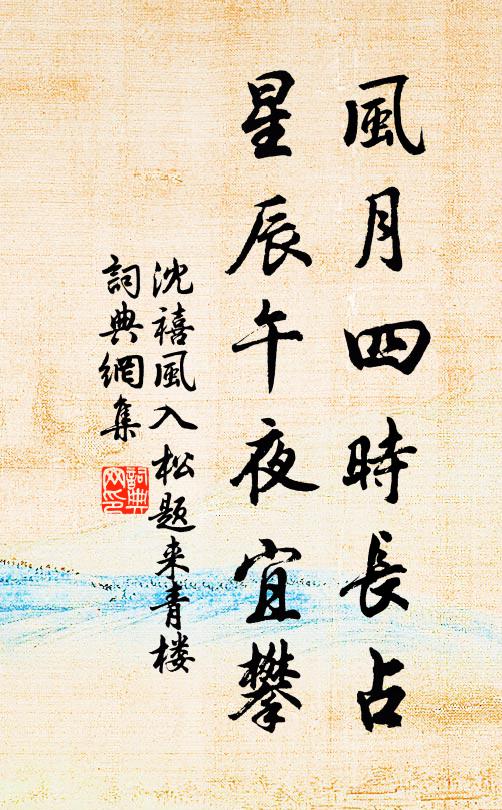 風月四時長占
星辰午夜宜攀
沈禧風入松題来青楼
詞典網集
詞典網印